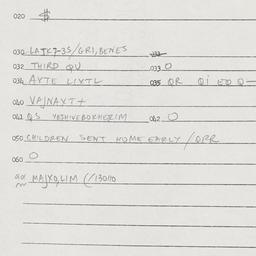 020 $
030 LATKT-3S/GRI,BENES
032 THIRD QU 033 O
034 AYTE LIXTL 035 QR QI EQ Q-
040 VAJNAXT+
041 QS YASHIVEBOKHERIM 042 O
050 CHILDREN SENT HOME EARLY / ORR
060 O
MAJXQ,LIM (/130110